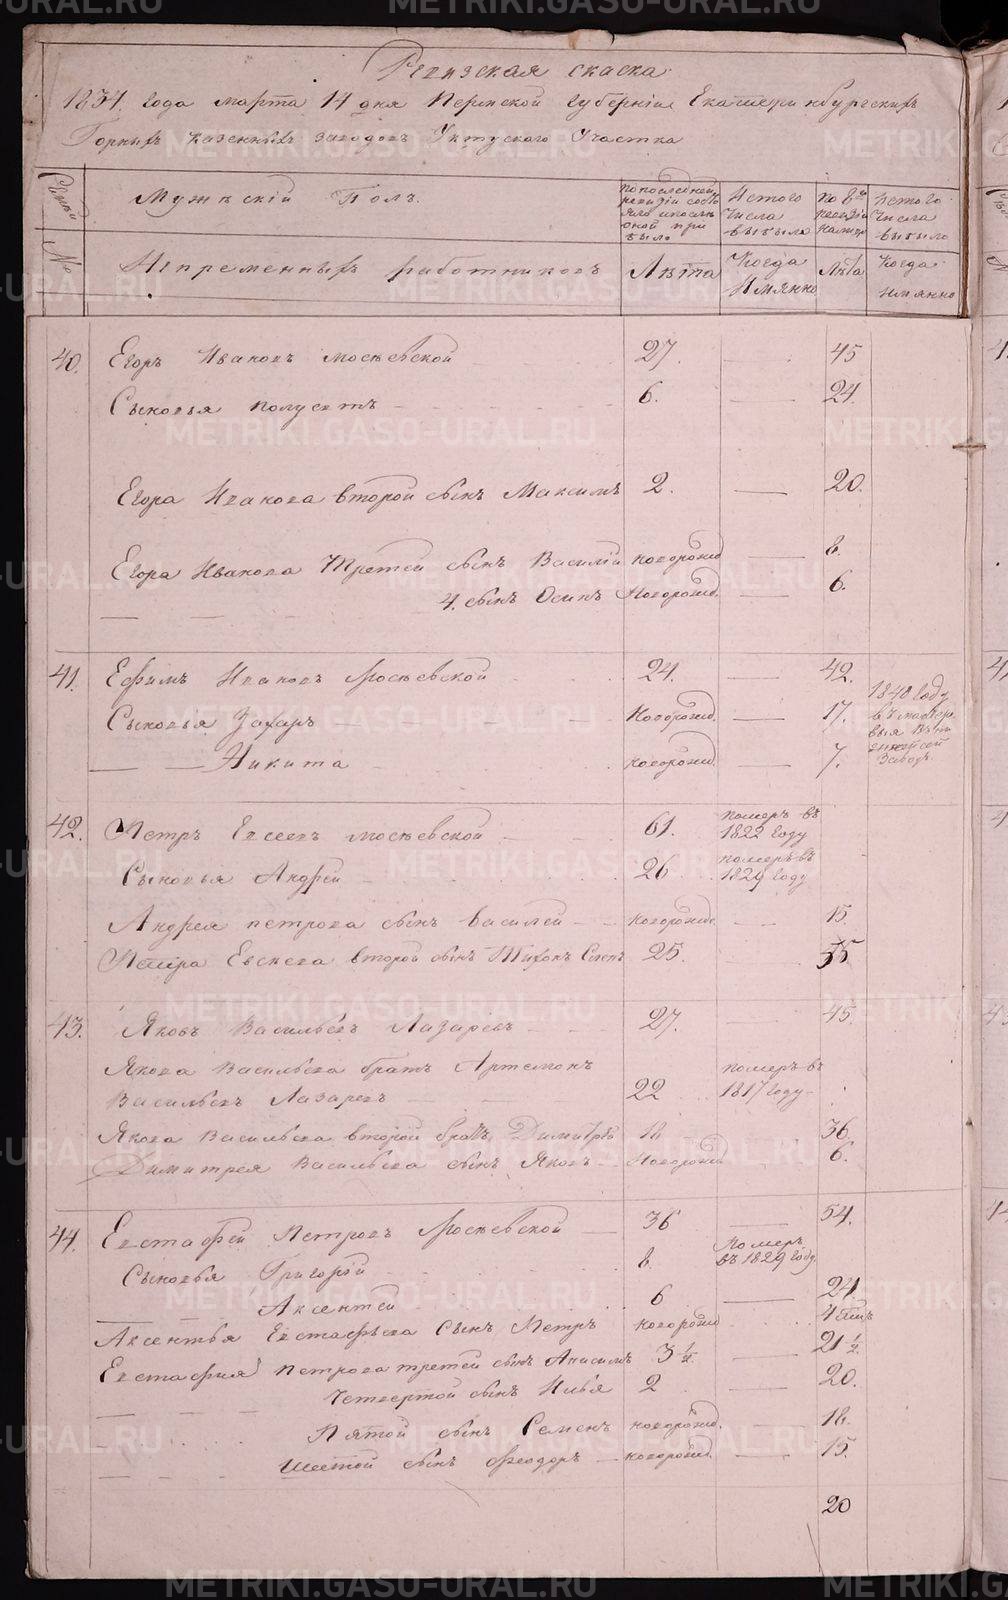 Ревизская скаска
1834. года марта 14 дня Пермской губернiи Екатеринбургскихъ
Горныхъ казенныхъ заводовъ Уктуского Участка
Семьи №
Мужескiй Полъ.
По последней ревизiи состояло и после оной прибыло
Изтого Числа выбыло
По 8й ревизiи налицо
Изтого Числа выбыло
Непременныхъ работниковъ
Лѣта
Когда Имянно
Лѣта
Когда имянно
40. Егоръ Ивановъ мосѣевской 27. — 45
Сыновья полуектъ 6. — 24.
Егора Иванова второй сынъ Максимъ 2. — 20.
Егора Иванова Третей сынъ Василiй новорожд — 8.
4. сынъ Осипъ Новорожд. — 6.
41. Ефимъ Ивановъ Мосѣевской 24. — 42.
Сыновья Захаръ Новорожд. — 17. 1840 году въ мастеровыя
завод.
— — Никита новорожд — 7.
42. Петръ Евсеевъ мосѣевской 61. померъ въ 1822 году
Сыновья Андрей 26 померъ въ 1829 году
Андрея петрова сынъ василей новорожде 15.
Петра Евсеева второй сынъ Тихонъ 25. 35
43. Яковъ Васильевъ Лазаревъ 27. 45.
Якова Васильева братъ Артемонъ
Васильевъ Лазаревъ 22 померъ въ 1817 году
Якова Васильева второй братъ Димитрей 18 36
Димитрея Васильева сынъ Яковъ Новорожд 6.
44. Евстафей Петровъ Мосѣевской 36 — 54.
Сыновья Григорiй 8. Померъ въ 1829 году.
Аксентей 6 — 24
Аксентья Евстафьева Сынъ Петръ новорожд
Евстафия Петрова третей сынъ Анисимъ 3 ½ — 21 ½
Четвертой сынъ Илья 2 — 20.
Пятой сынъ Семенъ новорожд. — 18.
Шестой сынъ Феодоръ новорожд. — 15.
20
METRIKI.GASO-URAL.RU